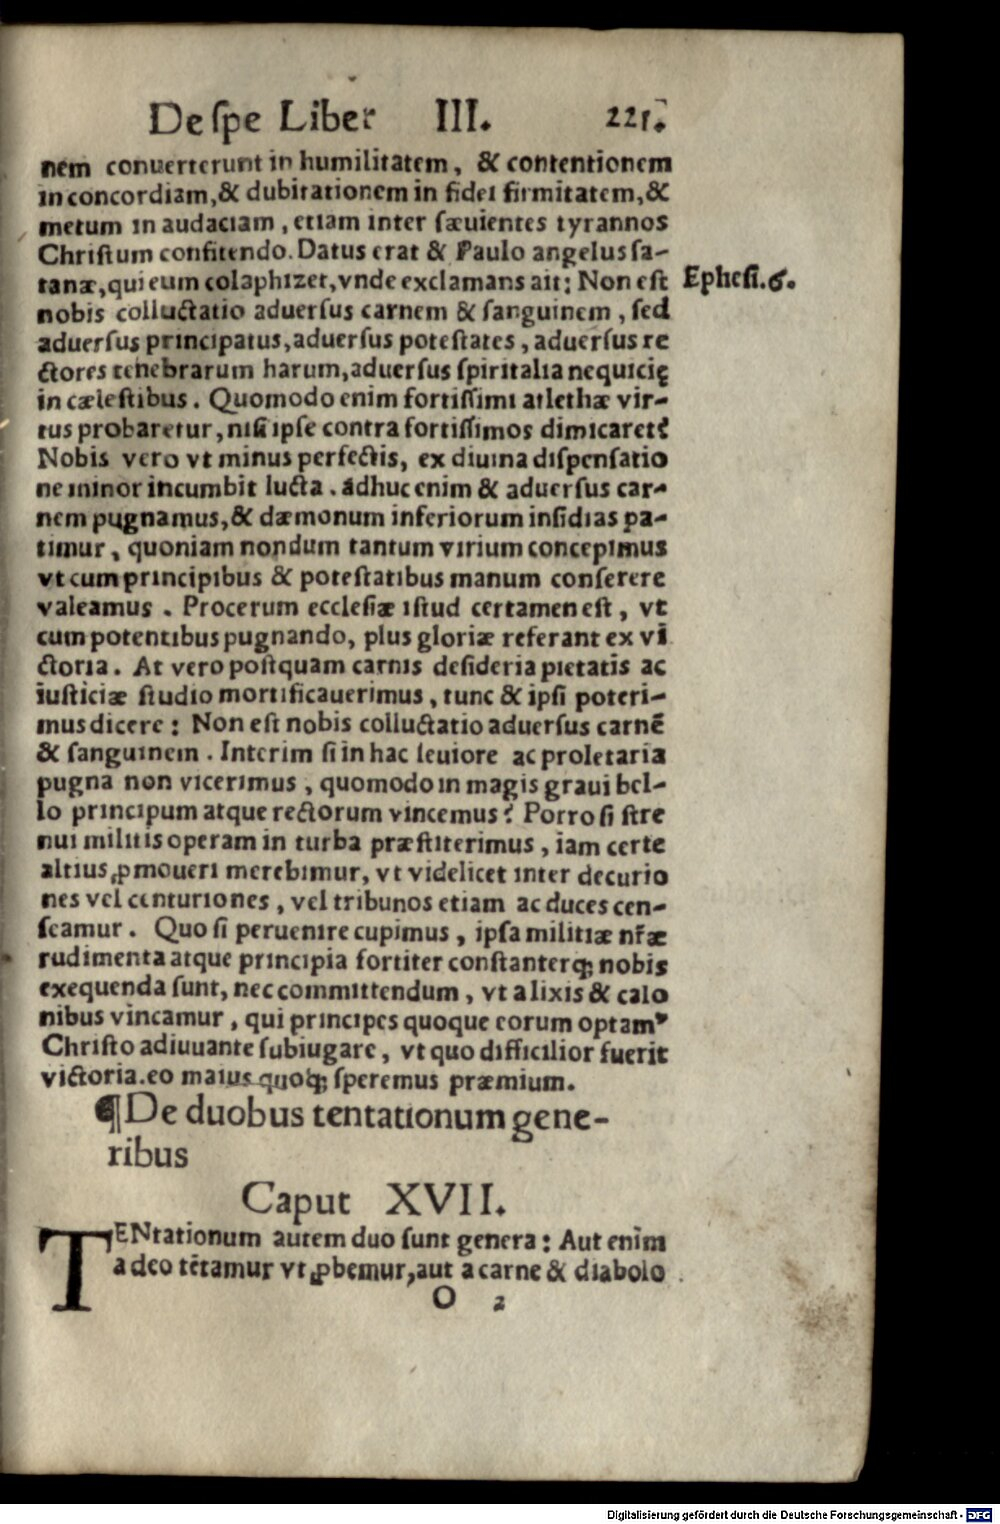 De ſpe Liber III. 221.
nem conuerterunt in humilitatem, & contentionem
in concordiam, & dubitationem in fidei firmitatem, &
metum in audaciam, etiam inter ſæuientes tyrannos
Chriſtum confitendo. Datus erat & Paulo angelus ſa-
tanæ, qui eum colaphizet, vnde exclamans ait: Non eſt
Epheſi. 6.
nobis colluctatio aduerſus carnem & ſanguinem, ſed
aduerſus principatus, aduerſus poteſtates, aduerſus re
ctores tenebrarum harum, aduerſus ſpiritalia nequicię
in cæleſtibus. Quomodo enim fortiſſimi atlethæ vir-
tus probaretur, niſi ipſe contra fortiſſimos dimicaret?
Nobis vero vt minus perfectis, ex diuina diſpenſatio
ne minor incumbit lucta. adhuc enim & aduerſus car-
nem pugnamus, & dæmonum inferiorum inſidias pa-
timur, quoniam nondum tantum virium concepimus
vt cum principibus & poteſtatibus manum conſerere
valeamus. Procerum eccleſiæ iſtud certamen eſt, vt
cum potentibus pugnando, plus gloriæ referant ex vi
ctoria. At vero poſtquam carnis deſideria pietatis ac
iuſticiæ ſtudio mortificauerimus, tunc & ipſi poteri-
mus dicere: Non eſt nobis colluctatio aduerſus carnē
& ſanguinem. Interim ſi in hac leuiore ac proletaria
pugna non vicerimus, quomodo in magis graui bel-
lo principum atque rectorum vincemus? Porro ſi ſtre
nui militis operam in turba præſtiterimus, iam certe
altius ꝓmoueri merebimur, vt videlicet inter decurio
nes vel centuriones, vel tribunos etiam ac duces cen-
ſeamur. Quo ſi peruenire cupimus, ipſa militiæ nr̃æ
rudimenta atque principia fortiter conſtanterq; nobis
exequenda ſunt, nec committendum, vt a lixis & calo
nibus vincamur, qui principes quoque eorum optamꝰ
Chriſto adiuuante ſubiugare, vt quo difficilior fuerit
victoria. eo maius quoq; ſperemus præmium.
¶ De duobus tentationum gene-
ribus
Caput XVII.
TENtationum autem duo ſunt genera: Aut enim
a deo tētamur vt ꝓbemur, aut a carne & diabolo
O 2
Digitalisierung gefördert durch die Deutsche Forschungsgemeinschaft - DFG